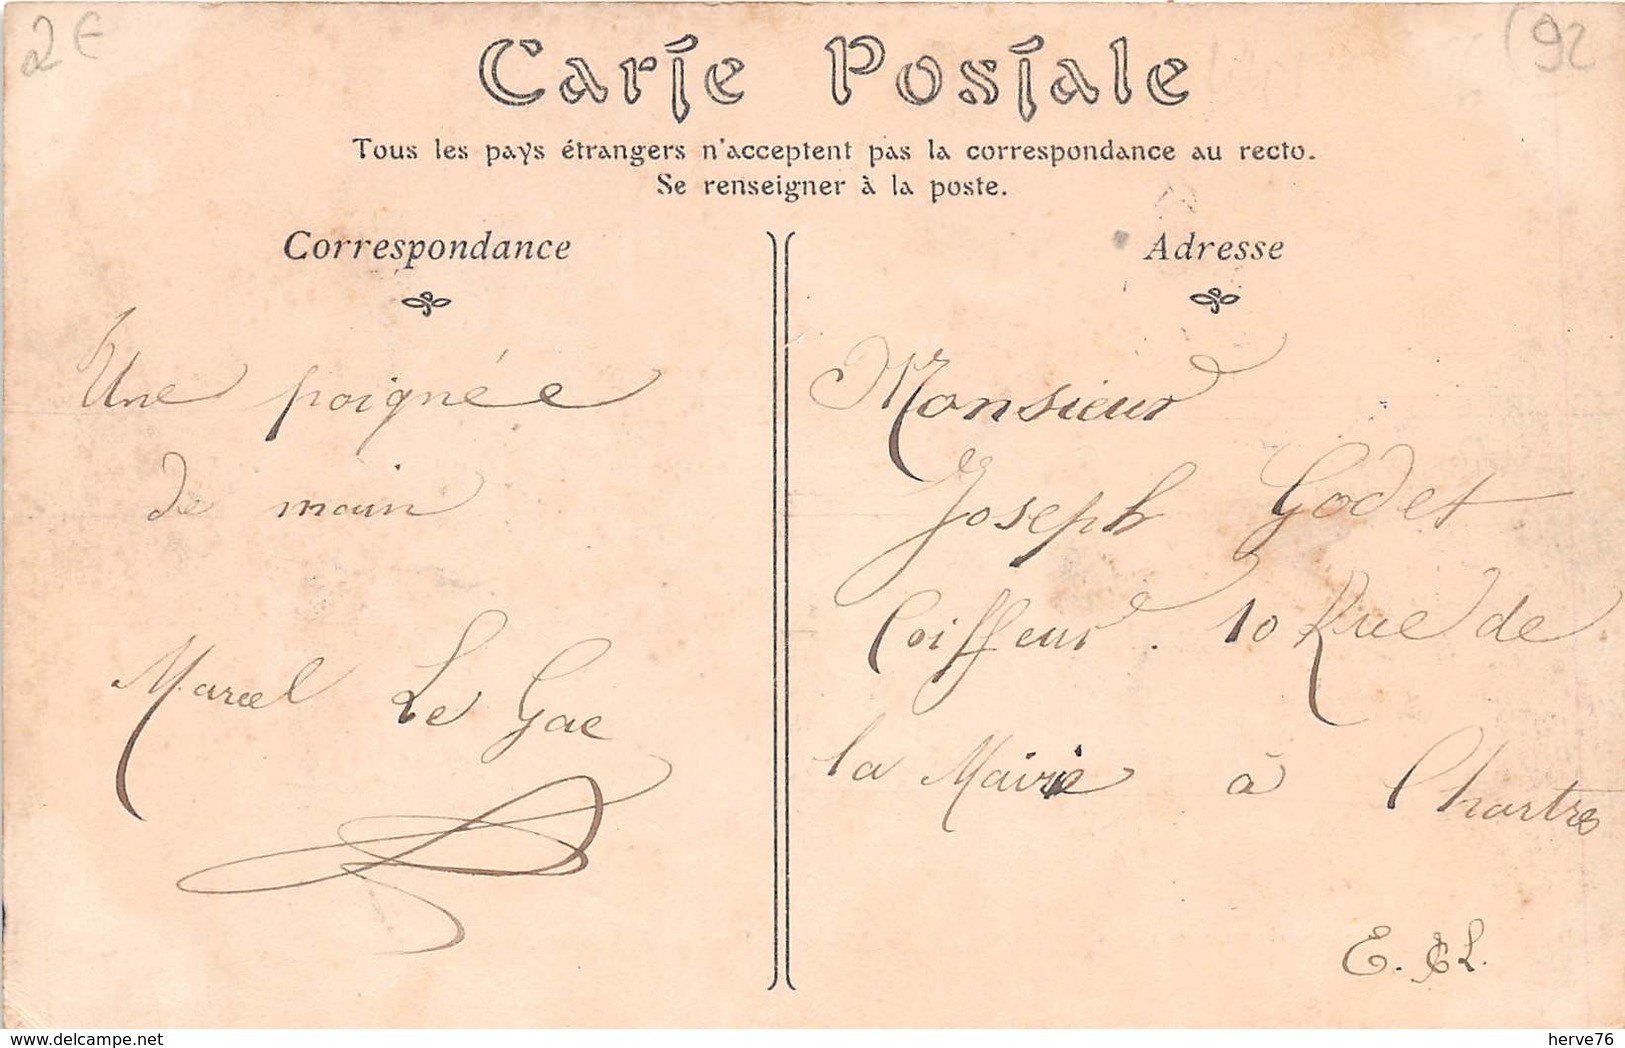 2€
(92
Carte Postale
Tous les pays étrangers n'acceptent pas la correspondance au recto.
Se renseigner à la poste.
Correspondance
Une poignée
de main
Marcel Le Gac
Adresse
Monsieur
Joseph Godet
Coiffeur. 10 Rue de
la Mairie à Chartres
E. &L.
delcampe.net
herve76